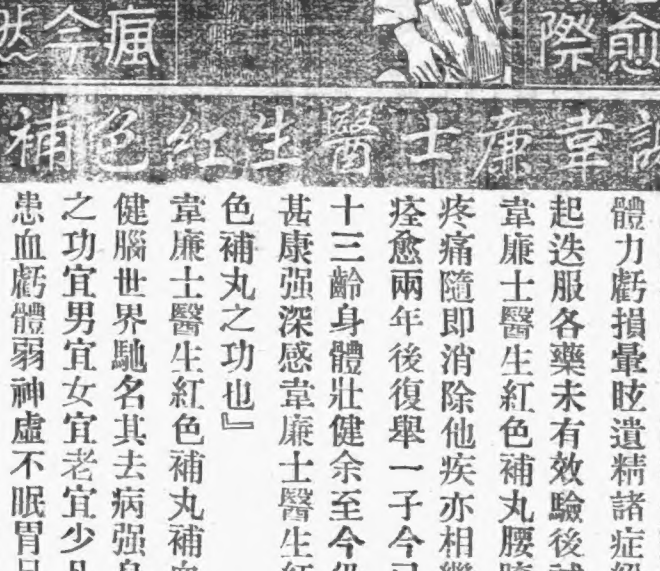 愈際
瘋今然
韋廉士醫生紅色補
體力虧損暈眩遺精諸症
起迭服各藥未有效驗後
韋廉士醫生紅色補丸腰
疼痛隨即消除他疾亦相
痊愈兩年後復舉一子今已
十三齡身體壯健余至今仍
甚康强深感韋廉士醫生紅
色補丸之功也』
韋廉士醫生紅色補丸補血
健腦世界馳名其去病强身
之功宜男宜女宜老宜少凡
患血虧體弱神虛不眠胃